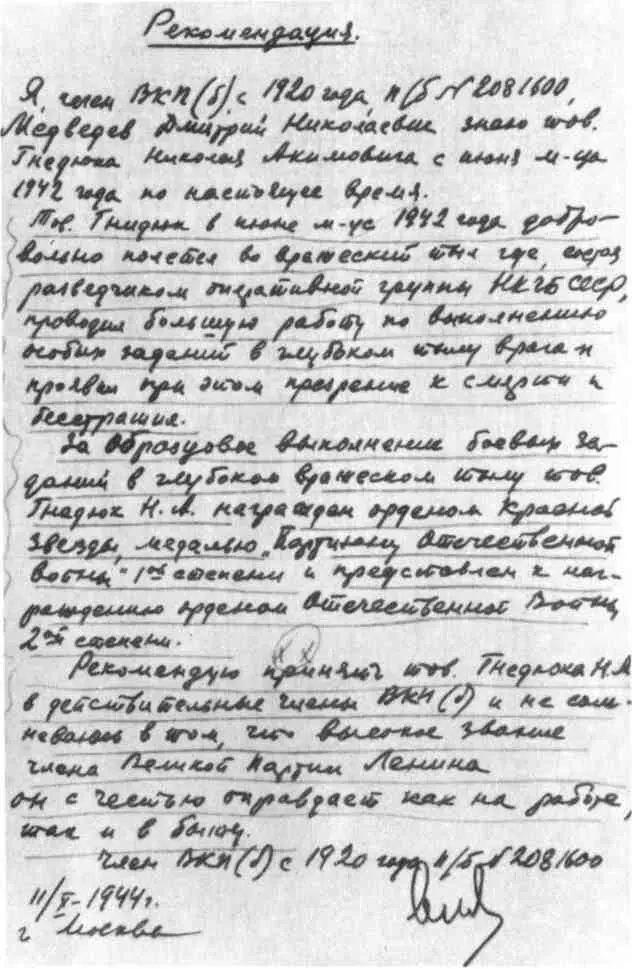 Рекомендация.
Я, член ВКП(б), с 1920 года, п/б № 2081600,
Медведев Дмитрий Николаевич знаю тов.
Гнедюка Николая Акимовича с июня м-ца
1942 года по настоящее время.
Тов. Гнидюк в июне м-це 1942 года добро-
вольно полетел во вражеский тыл где, состоя
разведчиком оперативной группы НКГБ СССР,
проводил большую работу по выполнению
особых заданий в глубоком тылу врага и
проявил при этом презрение к смерти и
бесстрашие.
За образцовое выполнение боевых за-
даний в глубоком вражеском тылу тов.
Гнедюк Н.А. награжден орденом Красной
Звезды, медалью "Партизану Отечественной
войны" 1ой степени и представлен к наг-
раждению орденом Отечественной Войны
2ой степени.
Рекомендую принять тов. Гнедюка Н.А.
в действительные члены ВКП(б) и не сом-
неваюсь в том, что высокое звание
члена Великой Партии Ленина
он с честью оправдает как на работе,
так и в бою.
Член ВКП(б) с 1920 года п/б № 2081600
11/X-1944г.
г Москва